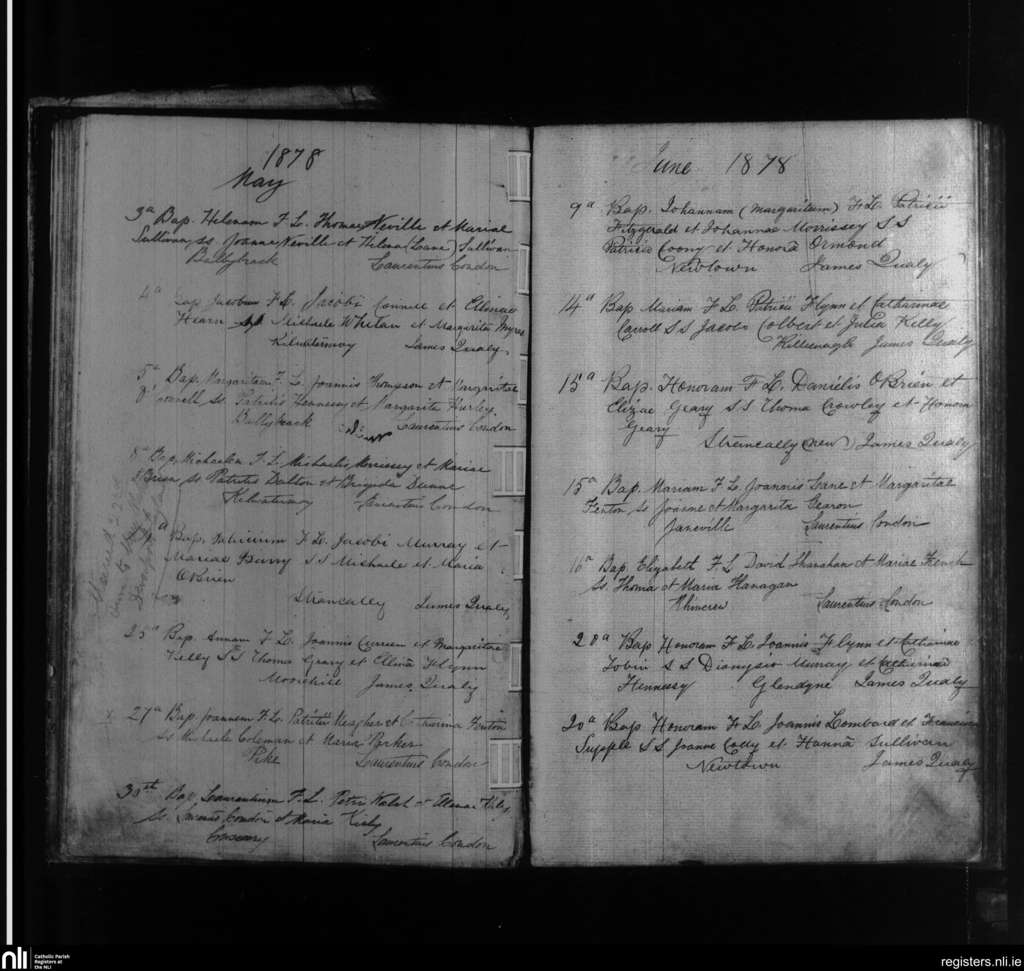 1878
May
3a Bap. Helenam F. L. Thomae Neville et Mariae
Sullivan, Ss. Joanne Neville et Helena (Loane) Sullivan
Ballytrack Laurentius Condon
4a Bap Jacobum F. L. Jacobi Connell et Ellenae
Hearn Michaele Whelan et Margarita Myres
Kilwatermoy James Qualy
5a Bap. Margaritam F. L. Joannis Thompson et Margaritae
Ss. Patritio Hennessy et Margarita Hurley.
Ballytrack Laurentius Condon
8a Bap. Michaelem F. L. Michaelis Morrissey et Mariae
OBrien Ss Patritio Dalton et Brigida
Kilwatermoy Laurentius Condon
Bap. F. L. Jacobi Murray et
Mariae Barry S S Michaele et Maria
OBrien
Strancally James Qualy
25a Bap. Annam F. L. Joannis Curreen et Margaritae
Kelly S S Thoma Geary et Ellena Flynn
Moorehill James Qualy
27a Bap. Joannem F. L. Patritii Meagher et Catherina Fenton
Ss Michaele Coleman et Maria Parker
Pike Laurentius Condon
30st Bap. Laurentium F. L. Petri Walsh et Ellenae Kirby
Ss. Condon et Maria Kirby
Laurentius Condon
June 1878
9a Bap. Johannam (Margaritam) F. L. Patricii
Fitzgerald et Johannae Morrissey S S
Patricio Coony et Honora Ormond
Newtown James Qualy
14a Bap Mariam F. L. Patricii Flynn et Catharinae
Carroll S S Jacobo Colbert et Julia Kelly
Killeenagh James Qualy
15a Bap. Honoram F. L. Danielis OBrien et
Elizae Geary S S Thoma Crowley et Honora
Geary
Strancally (new) James Qualy
15a Bap. Mariam F. L. Joannis Lane et Margaritae
Fenton, Ss Joanne et Margarita Gearon
Janeville Laurentius Condon
16a Bap. Elizabeth F. L David Shanahan et Mariae French
Ss Thoma et Maria Flanagan
Laurentius Condon
20a Bap Honoram F. L. Joannis Flynn et Catharinae
Tobin S S Dionysio Murray et Catharina
Hennessy Glendyne James Qualy
20a Bap Honoram F. L. Joannis Lombard et
Supple S S Joanne Cody et Hanna Sullivan
Newtown James Qualy
nli
Catholic Parish
Registers at
the NLI
registers.nli.ie